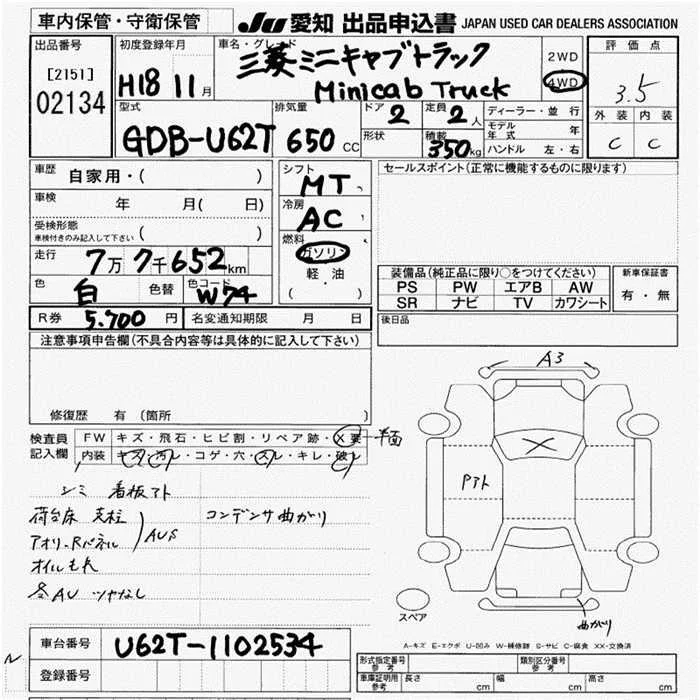 車内保管・守衛保管
JU 愛知 出品申込書 JAPAN USED CAR DEALERS ASSOCIATION
出品番号
[2151]
02134
初度登録年月
H18 11月
車名・グレード
三菱ミニキャブトラック
Minicab Truck
2WD
4WD
評価点
3.5
外装 内装
C C
型式
GDB-U62T
排気量
650 CC
ドア 2
形状
定員 2人
積載 350kg
ディーラー・並行
モデル年式 年
ハンドル 左・右
車歴 自家用・( )
車検 年 月( 日)
受検形態
車検付きのみ記入して下さい ( )
走行 7万7千652km
色 白 色替 色コード W74
シフト
MT
冷房
AC
燃料
ガソリン
軽・油
( ・ )
セールスポイント(正常に機能するものに限ります)
装備品(純正品に限り○をつけてください)
PS PW エアB AW
SR ナビ TV カワシート
新車保証書
有・無
R券 5,700円 名変通知期限 月 日
後日品
注意事項申告欄(不具合内容等は具体的に記入して下さい)
修復歴 有(箇所 )
検査員
記入欄
FW キズ・飛石・ヒビ割・リペア跡・X要 半面
内装 キズ・汚れ・コゲ・穴・スレ・キレ・破れ
シミ 看板アト
荷台床 支柱
アオリ.Rパネル
AUS
コンデンサ曲がり
オイルもれ
各AU ツヤなし
A3
Pアト
曲がり
スペア
A-キズ E-エクボ U-凹み W-補修跡 S-サビ C-腐食 XX-交換済
車台番号 U62T-1102534
登録番号
形式指定番号 参考
類別区分番号 参考
車庫証明用 参考 長さ cm 幅 cm 高さ cm